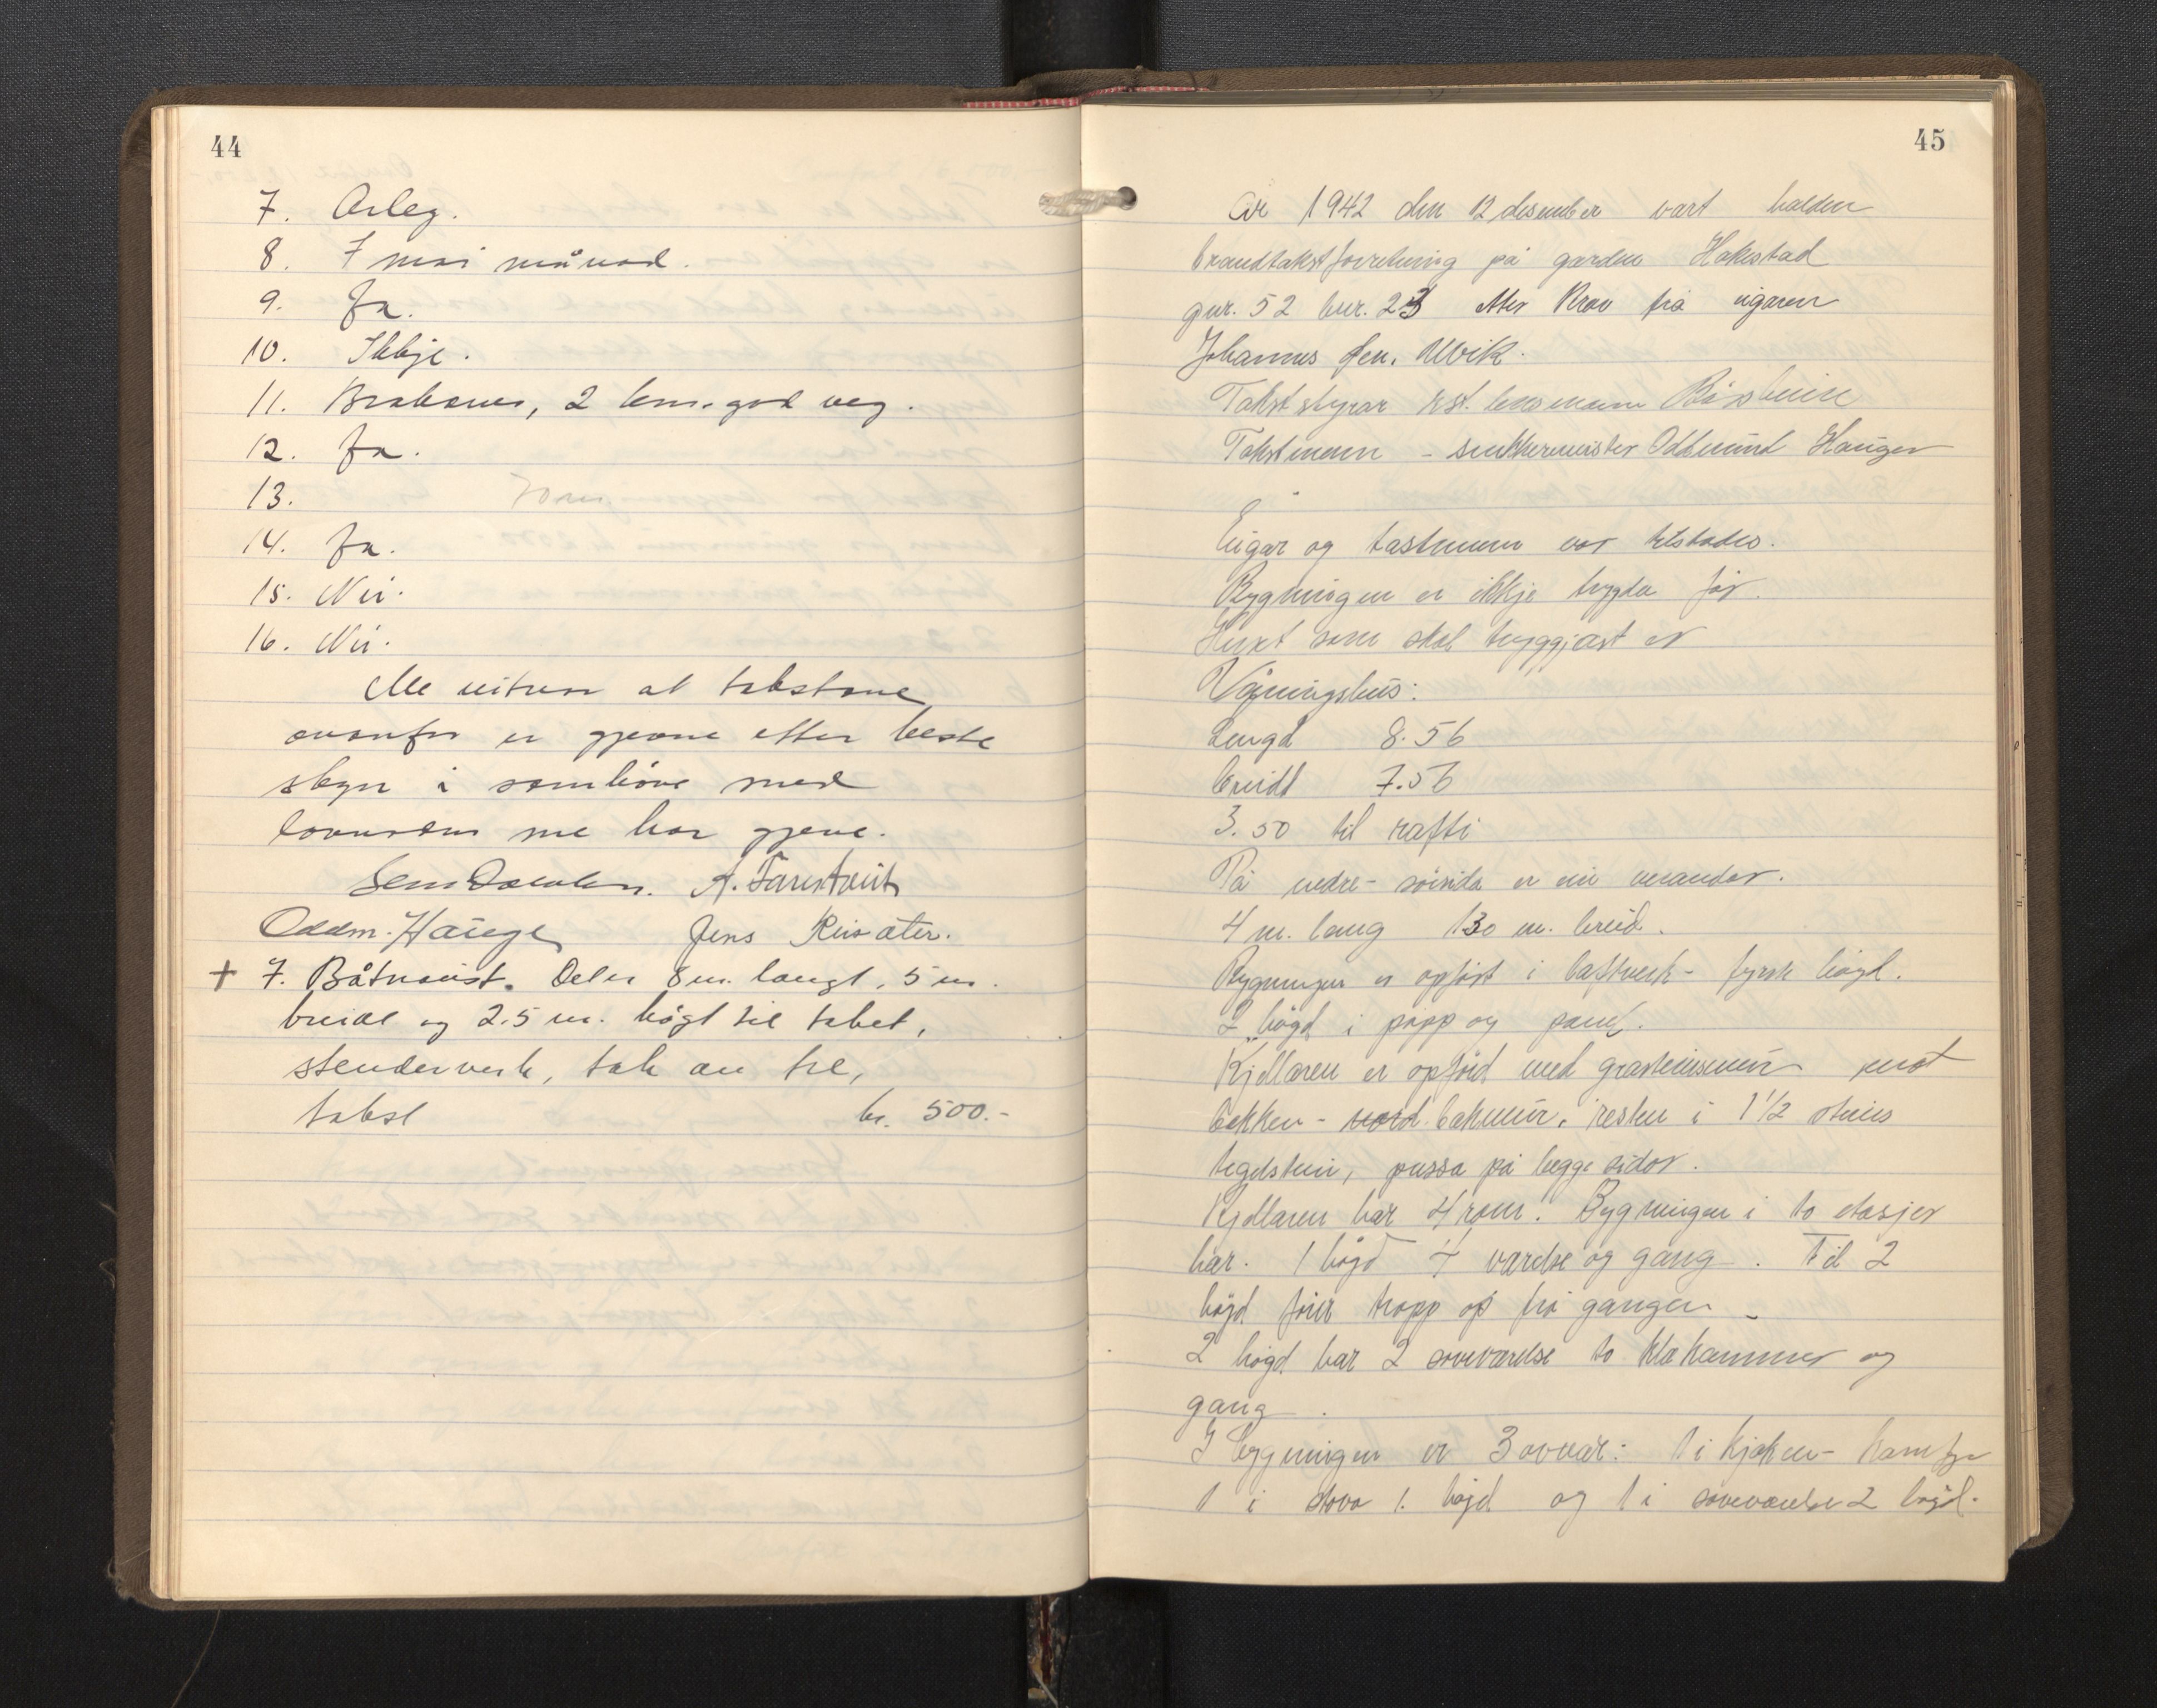 44
7. Arleg.
8. I mai månad.
9. Ja.
10. Ikkje.
11. Brakanes, 2 km. god veg.
12. Ja.
13.
14. Ja.
15. Nei.
16. Nei.
Me vitnar at takstane
ovanfor er gjevne etter beste
skyn i samhöve med
lovnaden me har gjeve.
A. Tarestveit
Oddm. Hauge Jens Kvisäter.
+ 7. Båtnaust. Det er 8 m. langt, 5 m.
breidt og 2.5 m. högt til taket,
stenderverk, tak av tre,
takst kr. 500.-
45
År 1942 den 12 desember vart halden
brandtakstforretning på garden Hakestad
gnr. 52 bnr. 23 etter krav frå eigaren
Johannes Jen. Ulvik.
Takststyrar kst. lensmann
Takstmenn - snikkermeister Oddmund Hauger
Eigar og takstmenn var tilstades.
Bygningen er ikkje trygda før.
Huset som skal tryggjast er
Våningshus:
Lengd 8.56
breidd 7.56
3.50 til rafti
På nedre - søisida er ein verandar.
4 m. lang 130 m. breid.
Bygningen er opført i laftverk - fyrste høgd.
2 høgd i papp og panel.
Kjellaren er opførd med grasteinsmur mot
bakken - nord. bakmur, resten i 1 1/2 steins
teglstein, pussa på begge sidor.
Kjellaren har 4 rom. Bygningen i to etasjer
har. 1 høgd 4 værelse og gang. Til 2
høgd föier tropp op frå gangen
2 høgd har 2 soveværelse to klekammer og
gang.
I bygningen er 3 ovnar: 1 i kjøken - komfyr
1 i stova 1. høgd og 1 i soveværelse 2 høgd.